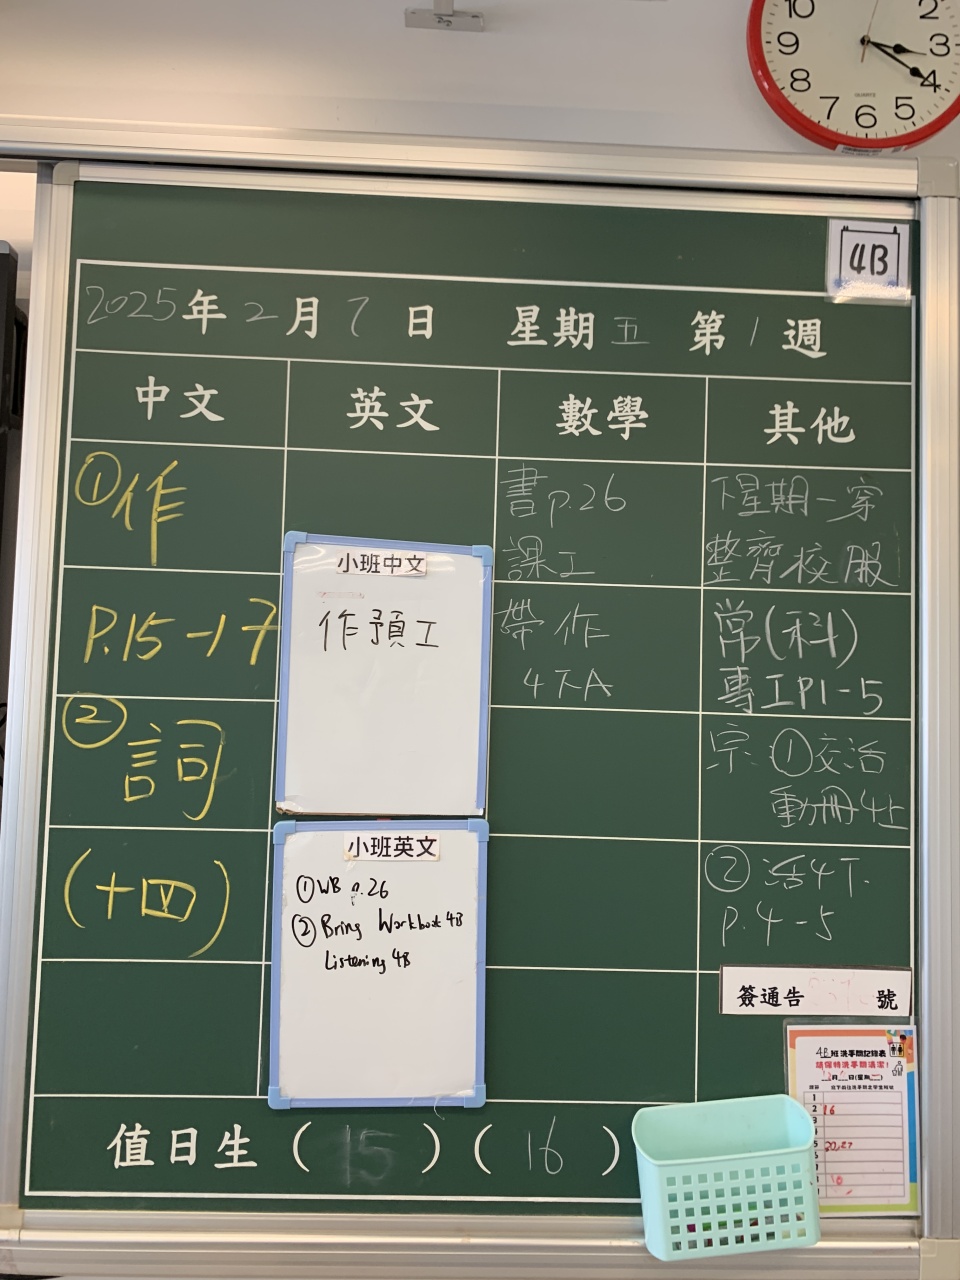 10
2
9
3
8
4
7
6
5
QUARTZ
4B
2025年2月7日 星期五 第1週
中文
英文
數學
其他
①作
P.15-17
②詞
(十四)
小班中文
作預工
小班英文
①WB p.26
②Bring Workbook 4B
Listening 4B
書p.26
課工
帶作
4下A
下星期一穿
整齊校服
常(科)
專工P1-5
宗:①交活
動冊4上
②活4下.
P.4-5
簽通告 號
4B班洗手間記錄表
請保持洗手間清潔!
1
2 16
3
5 20,27
10
值日生(15)(16)